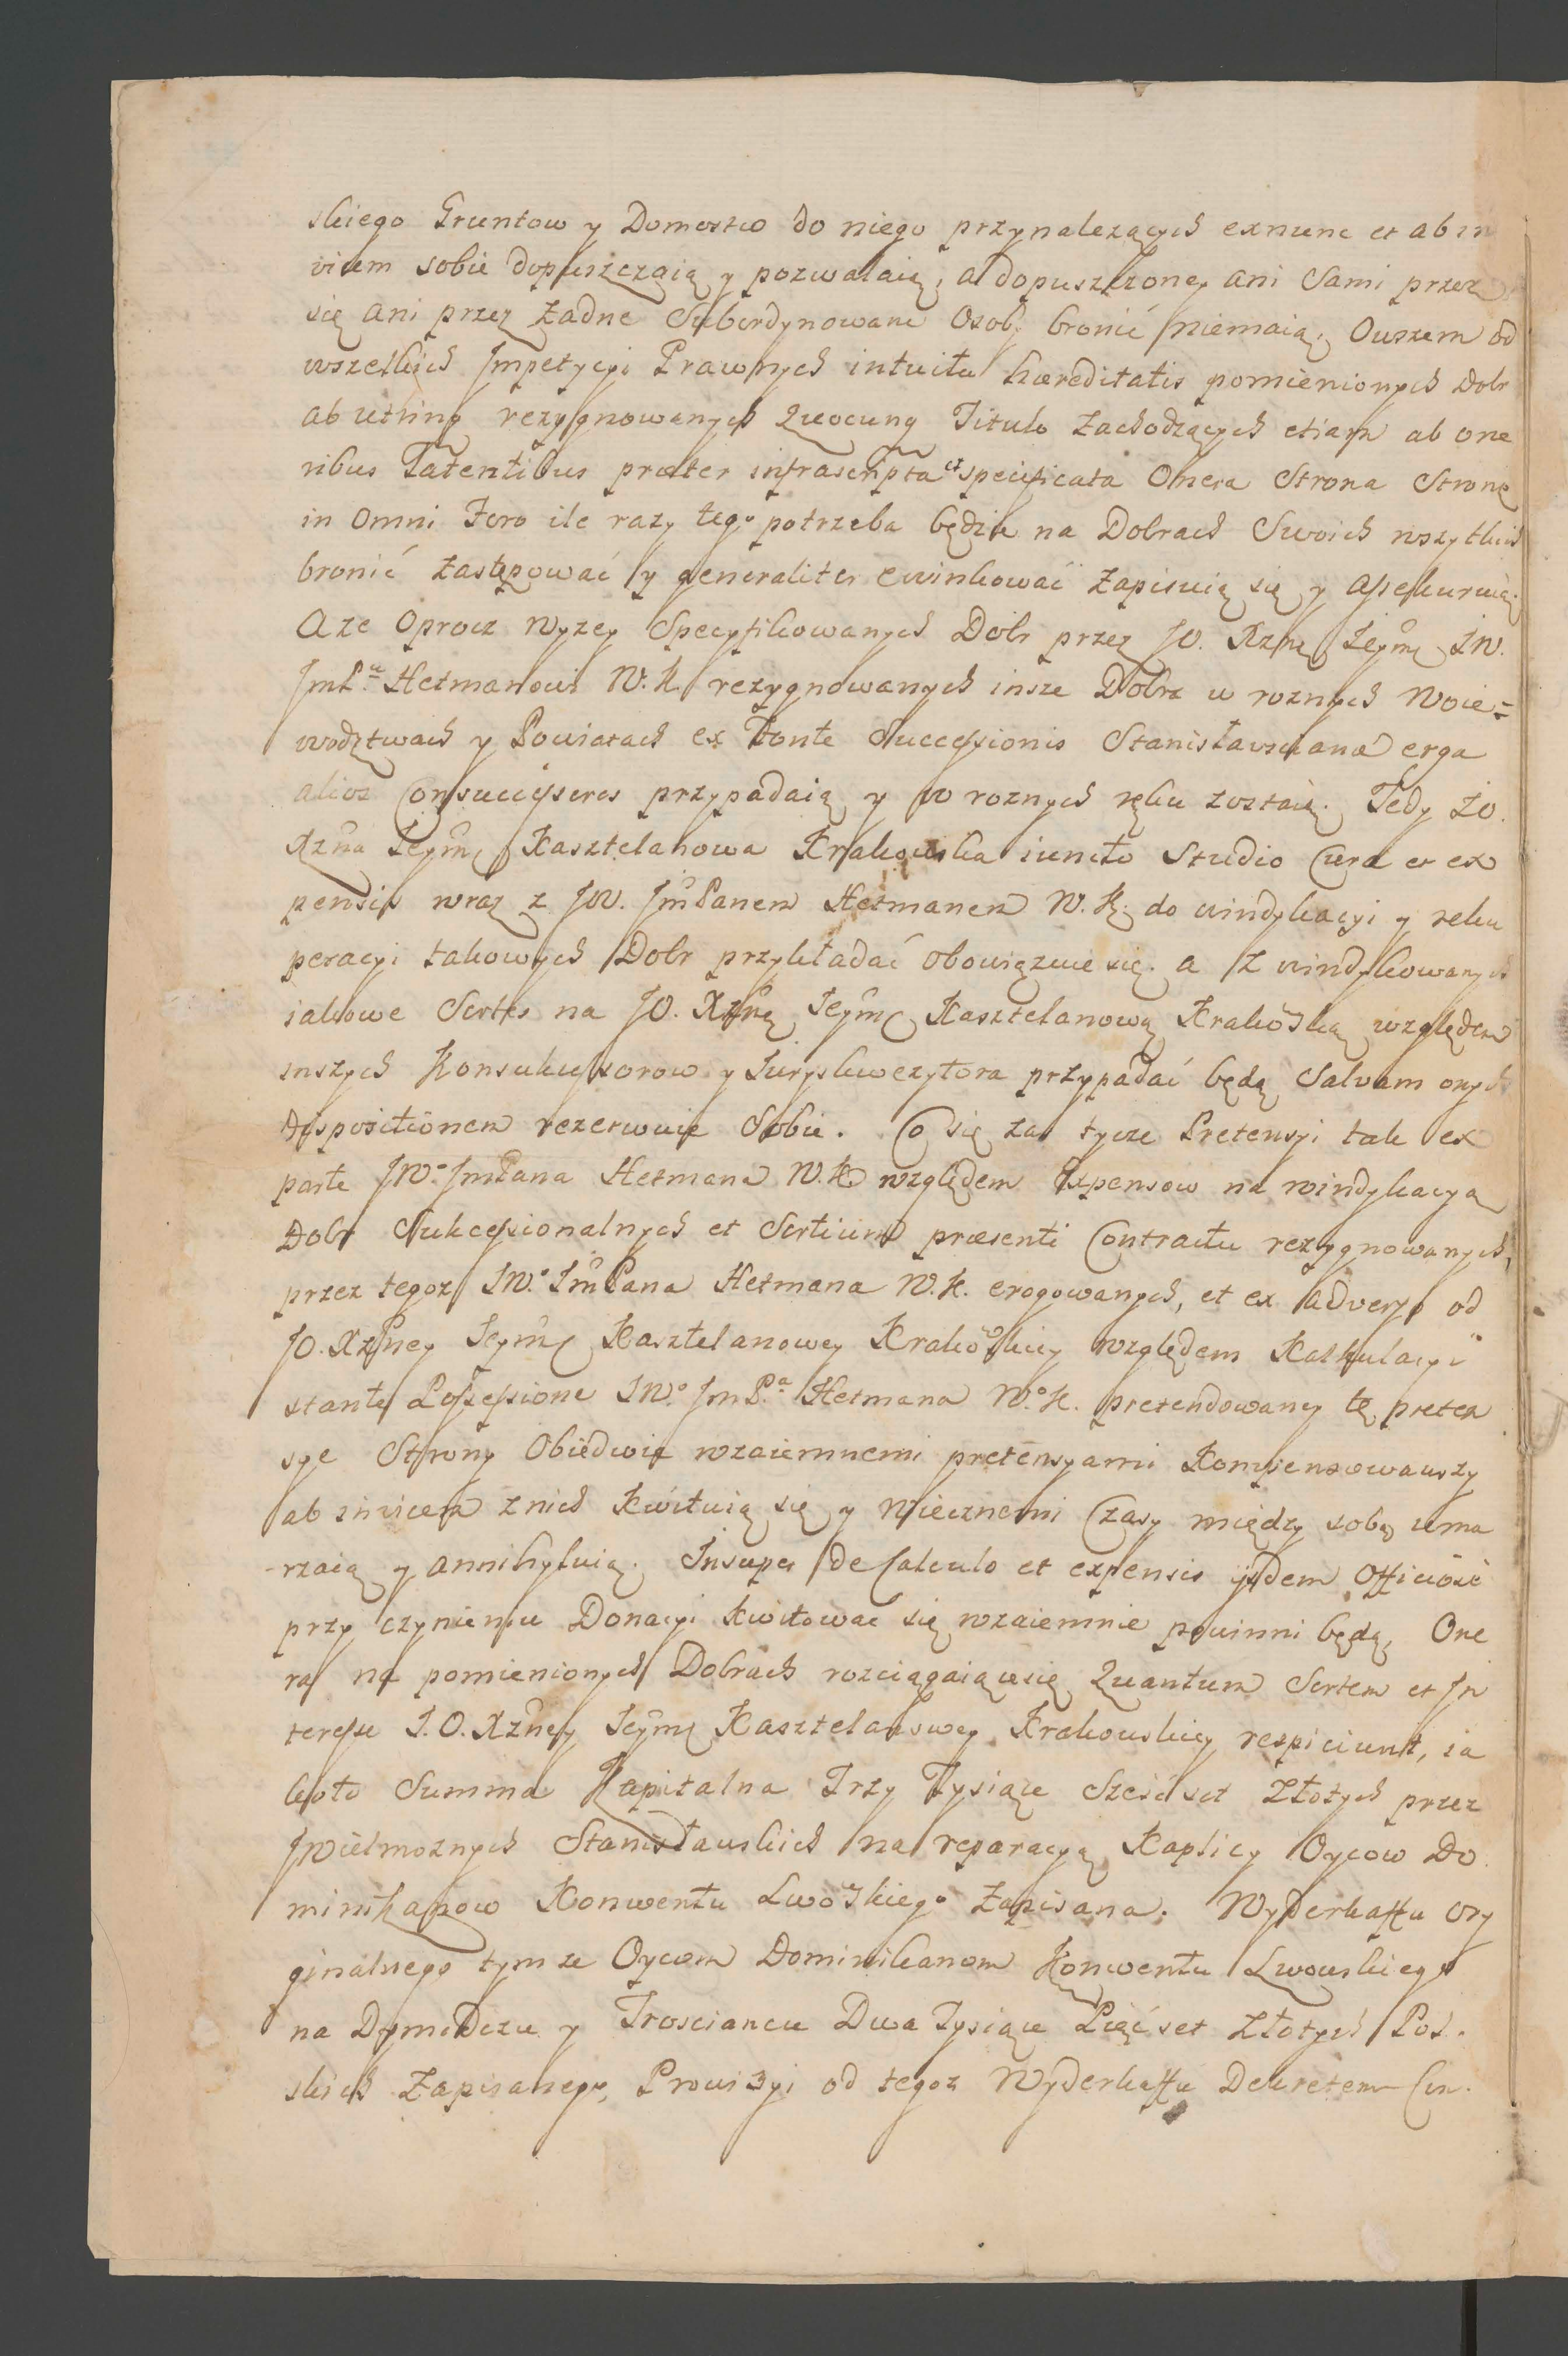 skiego Gruntow y Domostw do niego przynalezących exnunc et ab in
vicem sobie dopuszczaią y pozwalaią, a dopuszczoney ani Sami przez
się ani przez Zadne Subordynowane Osoby bronić niemaią, Owszem od
wszelkich Jmpetycyi Prawnych intuitu hæreditatis pomienionych Dobr
ab utrinq rezygnowanych Quocunq Titulo Zachodzących etiam ab one
ribus Latentibus præter infrascripta et specificata Onera Strona Stronę
in Omni Foro ile razy tego potrzeba będzie na Dobrach Swoich wszytkich
bronić Zastępować y generaliter ewinkować Zapisuią się y assekuruią.
Aze Oprocz Wyzey Specyfikowanych Dobr przez JO. Xznę Jeymę JW.
JmPu Hetmanowi W. K. rezygnowanych insze Dobra w roznych Woie=
wodztwach y Powiatach ex Fonte Successionis Stanisławscianæ erga
alios Consuccessores przypadaią y w roznych ręku zostaią. Tedy JO.
Xzna Jeymę Kasztelanowa Krakowska iuncto Studio Cura et ex
pensis wraz z JW. JmPanem Hetmanem W. K. do windykacyi y reku
peracyi takowych Dobr przykładać obowiązuie się. a Z windykowanych
iakowe Sortes na JO. Xznę Jeymę Kasztelanową Krakowską względem
inszych Konsukcessorow y Juryskwezytora przypadać będą Salvam onych
dispositionem rezerwuie Sobie. Co się zas tycze Pretensyi tak ex
parte JWo JmPana Hetmana W. K. względem Expensow na windykacyą
Dobr Sukcessionalnych et Sortium præsenti Contractu rezygnowanych,
przez tegoz JWo JmPana Hetmana W. K. erogowanych, et ex adverso od
JO. Xzney Jeymę Kasztelanowey Krakowskiey względem Kalkulacyi
stante Possessione JWo JmPa Hetmana Wo K. pretendowaney tę preten
sye Strony Obiedwie wzaiemnemi pretensyami Kompensowawszy
ab invicem znich Kwituią się y Wiecznemi Czasy między sobą uma
rzaią y annihyluią. Insuper de Calculo et expensis ijsdem Officiose
przy czynieniu Donacyi Kwitowac się wzaiemnie powinni będą, One
ra na pomienionych Dobrach rozciągaiącesię Quantum Sortem et Jn
teresse J. O. Xzney Jeymę Kasztelanowey Krakowskiey respiciunt, ia
koto Summa Kapitalna Trzy Tysiące Sześćset Złotych przez
JWielmoznych Stanisławskich na reparacyą Kaplicy Oycow Do
minikanow Konwentu Lwowskiego Zapisana. Wyderkaffu ory
ginalnego tymze Oycom Dominikanom Konwentu Lwowskiego
na Dymidczu y Troscianeu Dwa Tysiące Pięćset Złotych Pol.
skich Zapisanego, Prowizyi od tegoz Wyderkaffu Dekretem